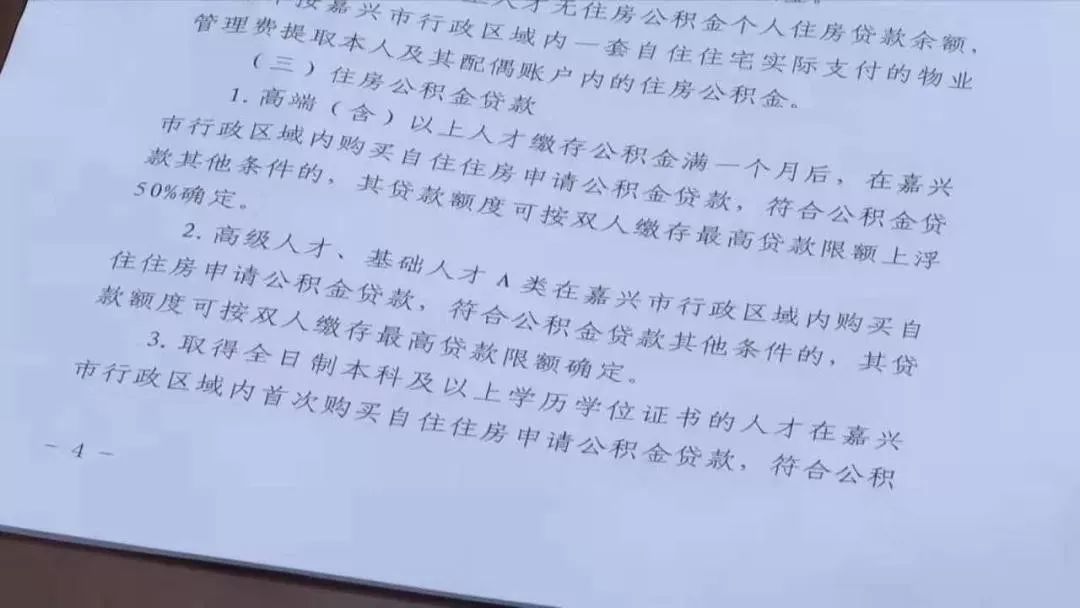 上人才无住房公积金个人住房贷款余额，
按嘉兴市行政区域内一套自住住宅实际支付的物业
管理费提取本人及其配偶账户内的住房公积金。
（三）住房公积金贷款
1.高端（含）以上人才缴存公积金满一个月后，在嘉兴
市行政区域内购买自住住房申请公积金贷款，符合公积金贷
款其他条件的，其贷款额度可按双人缴存最高贷款限额上浮
50%确定。
2.高级人才、基础人才A类在嘉兴市行政区域内购买自
住住房申请公积金贷款，符合公积金贷款其他条件的，其贷
款额度可按双人缴存最高贷款限额确定。
3.取得全日制本科及以上学历学位证书的人才在嘉兴
市行政区域内首次购买自住住房申请公积金贷款，符合公积
-4-